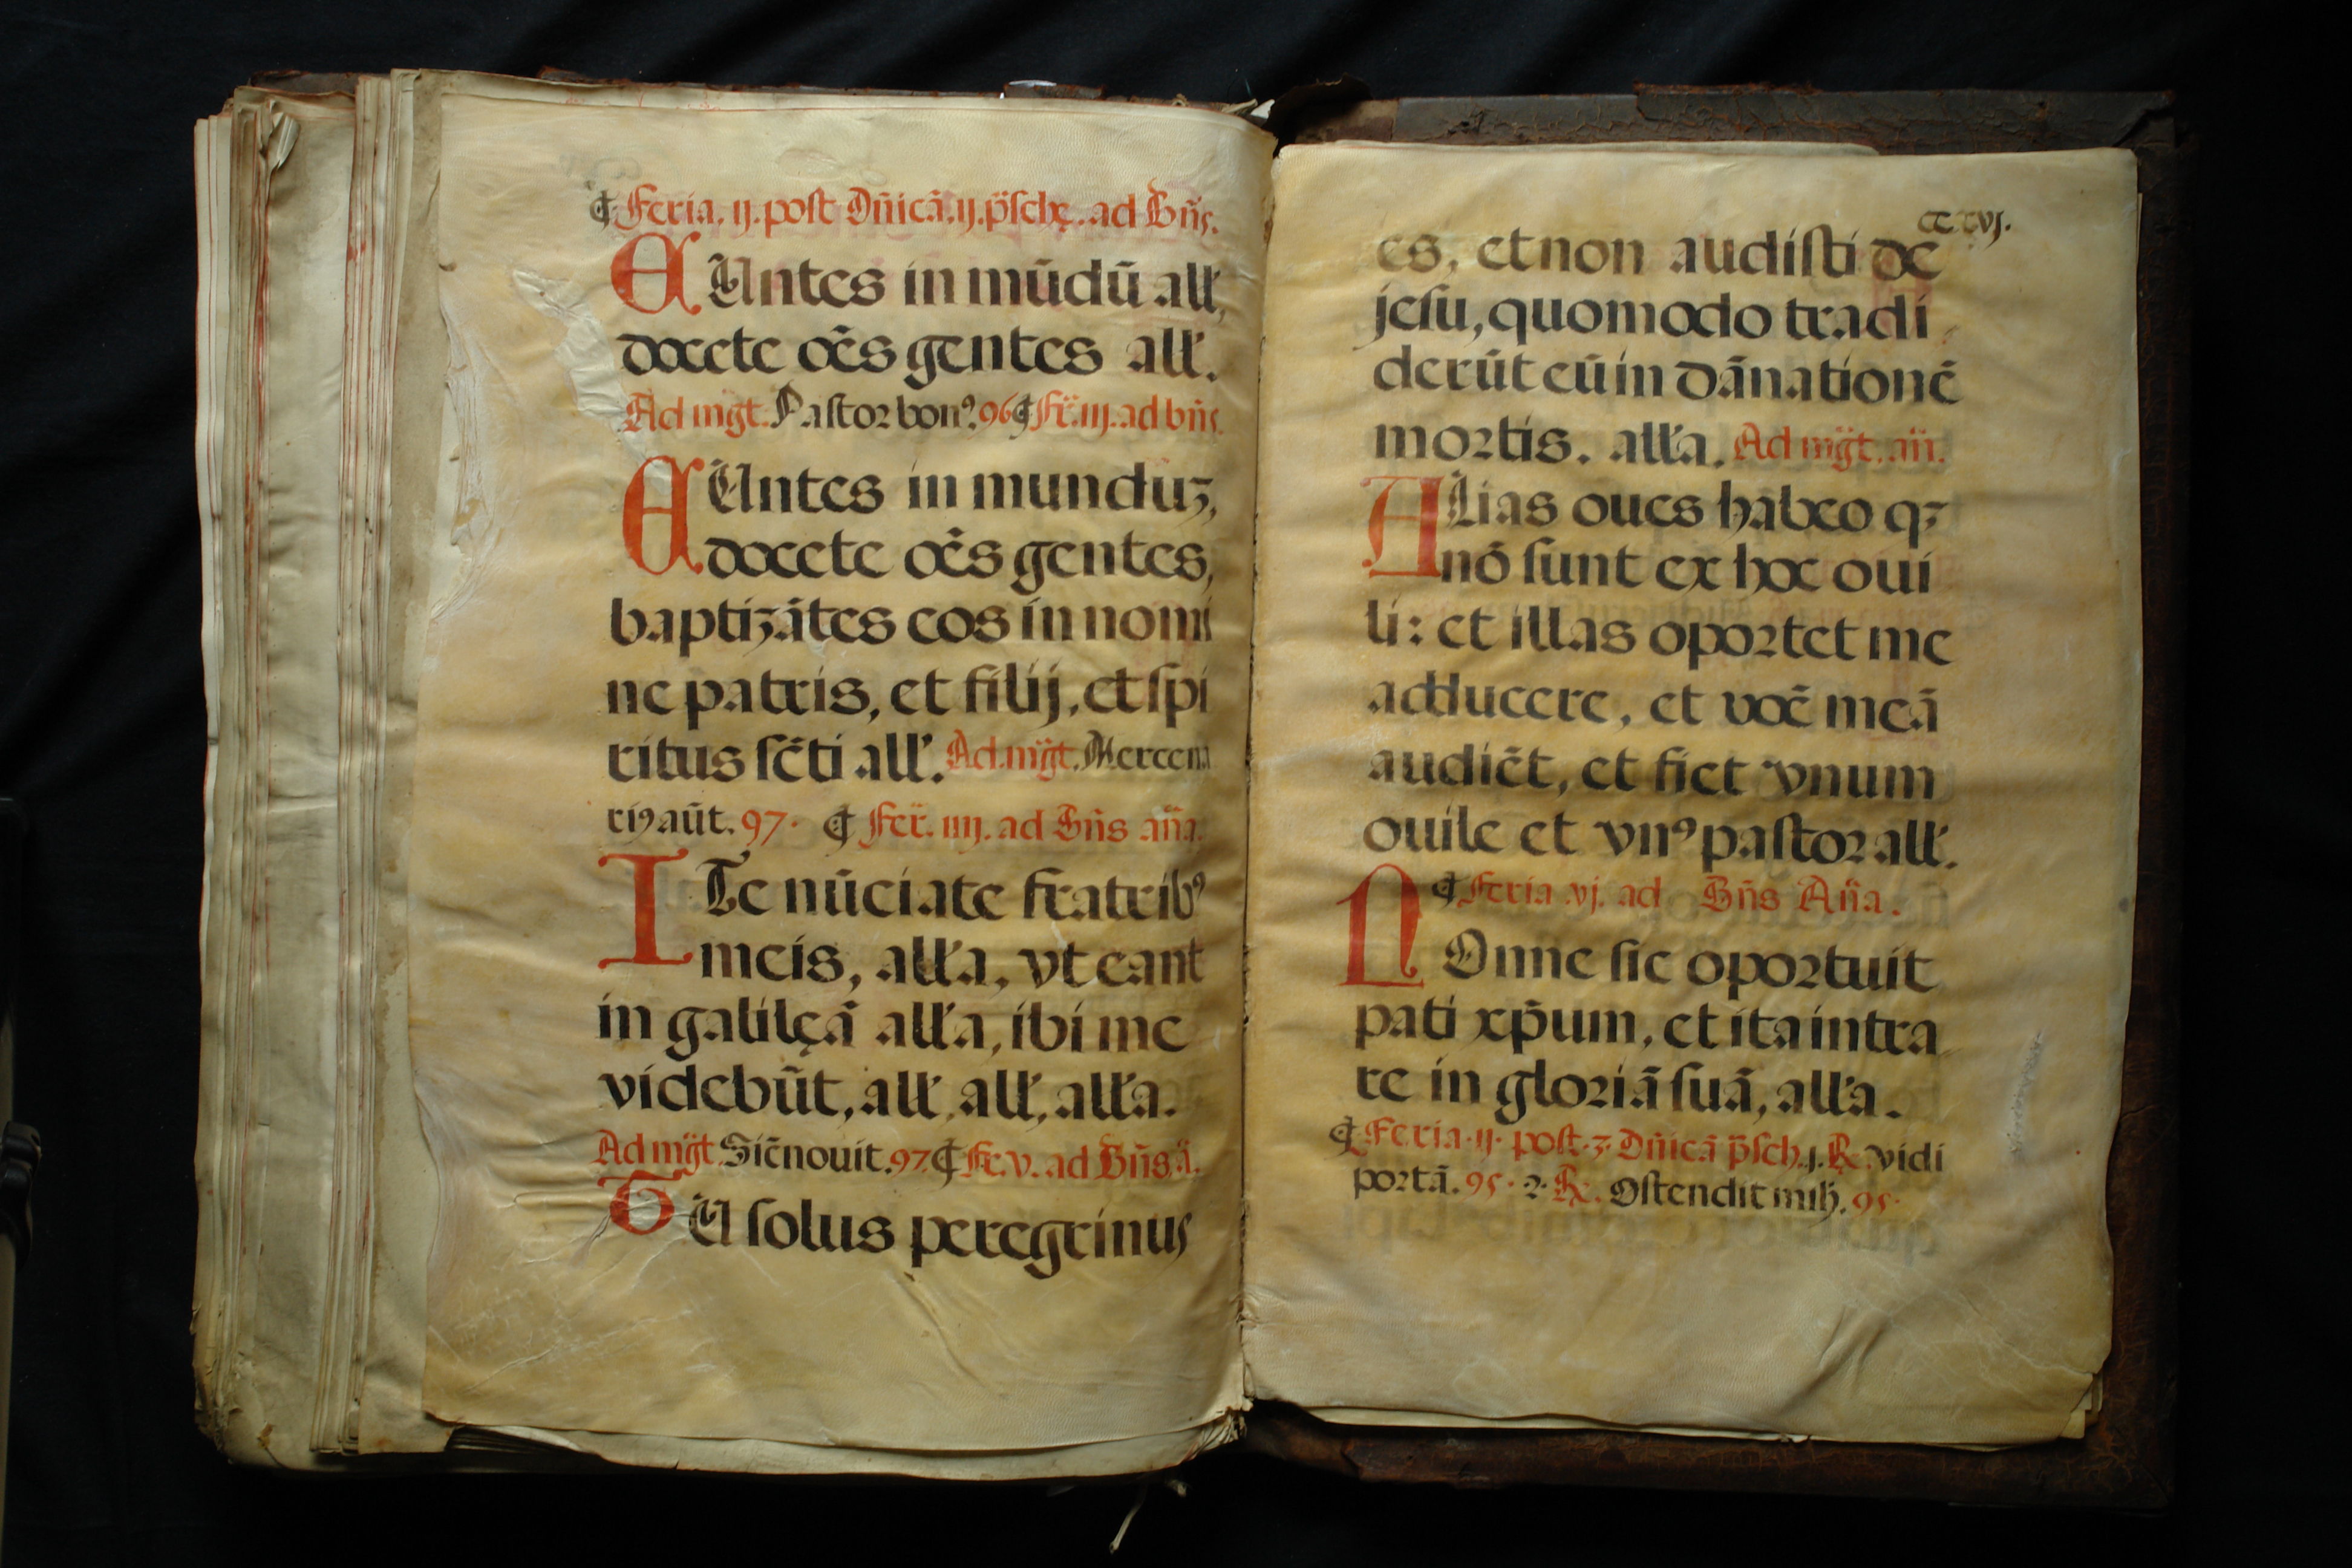 ¶ Feria. ij. post Dñicã. ij. p̃schę. ad Bñs.
EUntes in mũdũ all',
docete oẽs gentes all'.
Ad mg̃t. Pastor bonꝰ. 96 ¶ Fẽ. iij. ad bñs.
EUntes in munduꝫ,
docete oẽs gentes,
baptizãtes eos in nomi
ne patris, et filij, et spi
ritus sc̃ti all'. Ad mg̃t. Mercena
riꝰ aũt. 97. ¶ Fer̃. iiij. ad Bñs añа.
ITe nũciate fratribꝰ
meis, all'a, vt eant
in galilęã all'a, ibi me
videbũt, all', all', all'a.
Ad mg̃t. Sic̃ nouit. 97. ¶ Fe. v. ad Bñs ã.
TU solus peregrinus
cc.xvj.
es, et non audisti de
jesu, quomodo tradi
derũt eũ in dãnationẽ
mortis. all'a. Ad mg̃t. añ.
ALias oues habeo qꝫ
nõ sunt ex hoc oui
li: et illas oportet me
adducere, et vocẽ meã
audiẽt, et fiet vnum
ouile et vnꝰ pastor all'.
¶ Feria vj. ad Bñs Añа.
NOnne sic oportuit
pati xp̃um, et ita intra
re in gloriã suã, all'a.
¶ Feria. ij. post. 3. Dñicã p̃sch. j. ℞. vidi
portã. 95. 2. ℞. Ostendit mihj. 95.